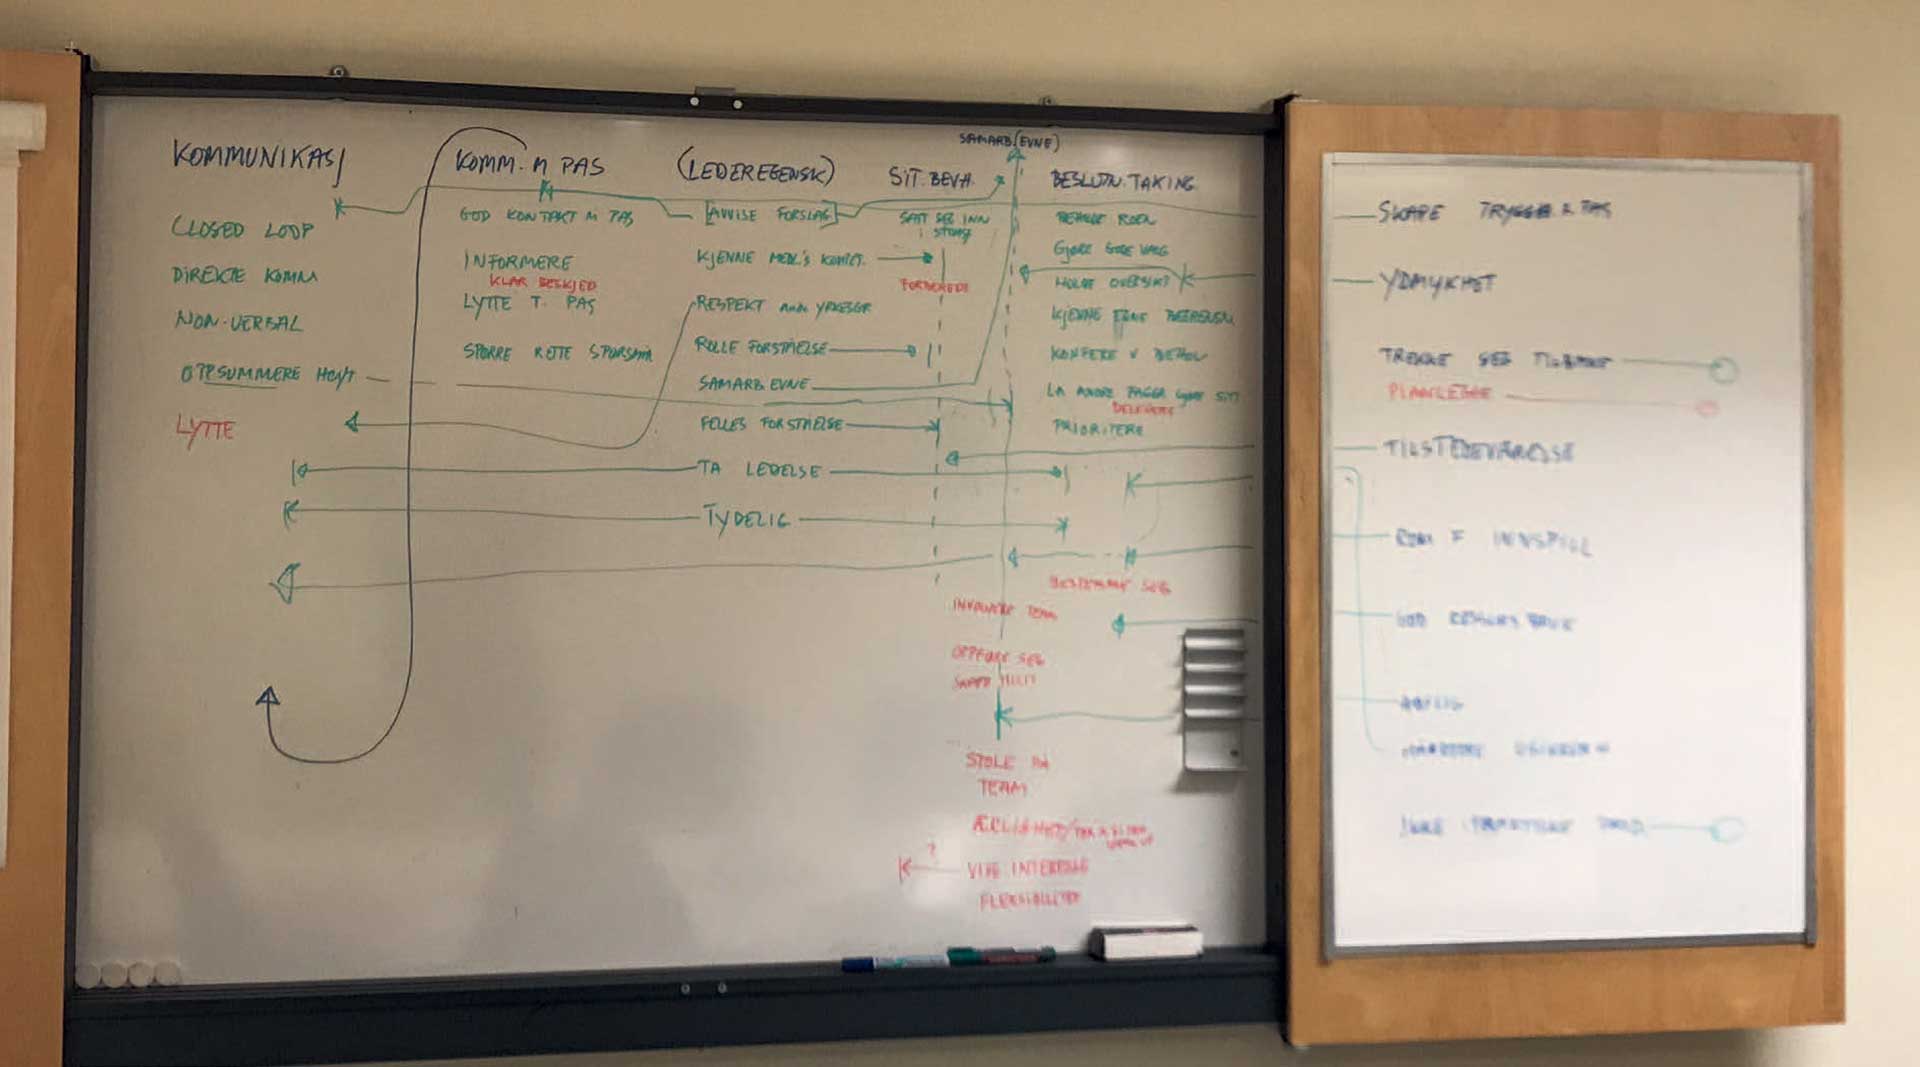 KOMMUNIKASJ
CLOSED LOOP
DIREKTE KOMM
NON-VERBAL
OPPSUMMERE HØYT
LYTTE
KOMM. M PAS
GOD KONTAKT M PAS
INFORMERE
KLAR BESKJED
LYTTE T. PAS
SPØRRE RETTE SPØRSMÅL
(LEDEREGENSK)
[AVVISE FORSLAG]
KJENNE MEDL'S KOMPET.
RESPEKT
ROLLE FORSTÅELSE
SAMARB. EVNE
FELLES FORSTÅELSE
TA LEDELSE
TYDELIG
SIT. BEVH.
SATT SEG INN
I
FORBEREDE
SAMARB(EVNE)
INVOLVERE TEAM
STOLE PÅ
TEAM
ÆRLIGHET/
?
VISE INTERESSE
FLEKSIBILITET
BESLUTN. TAKING
BEHOLDE ROEN
GJØRE GODE VALG
HOLDE OVERSIKT
KJENNE EGNE BEGRENSN
KONFERE V BEHOV
LA ANDRE
DELEGERE
PRIORITERE
BESTEMME SEG
SKAPE TRYGGE PAS
YDMYKHET
TREKKE SEG TILBAKE
PLANLEGGE
TILSTEDEVÆRELSE
ROM F INNSPILL
GOD
ÆRLIG
IKKE